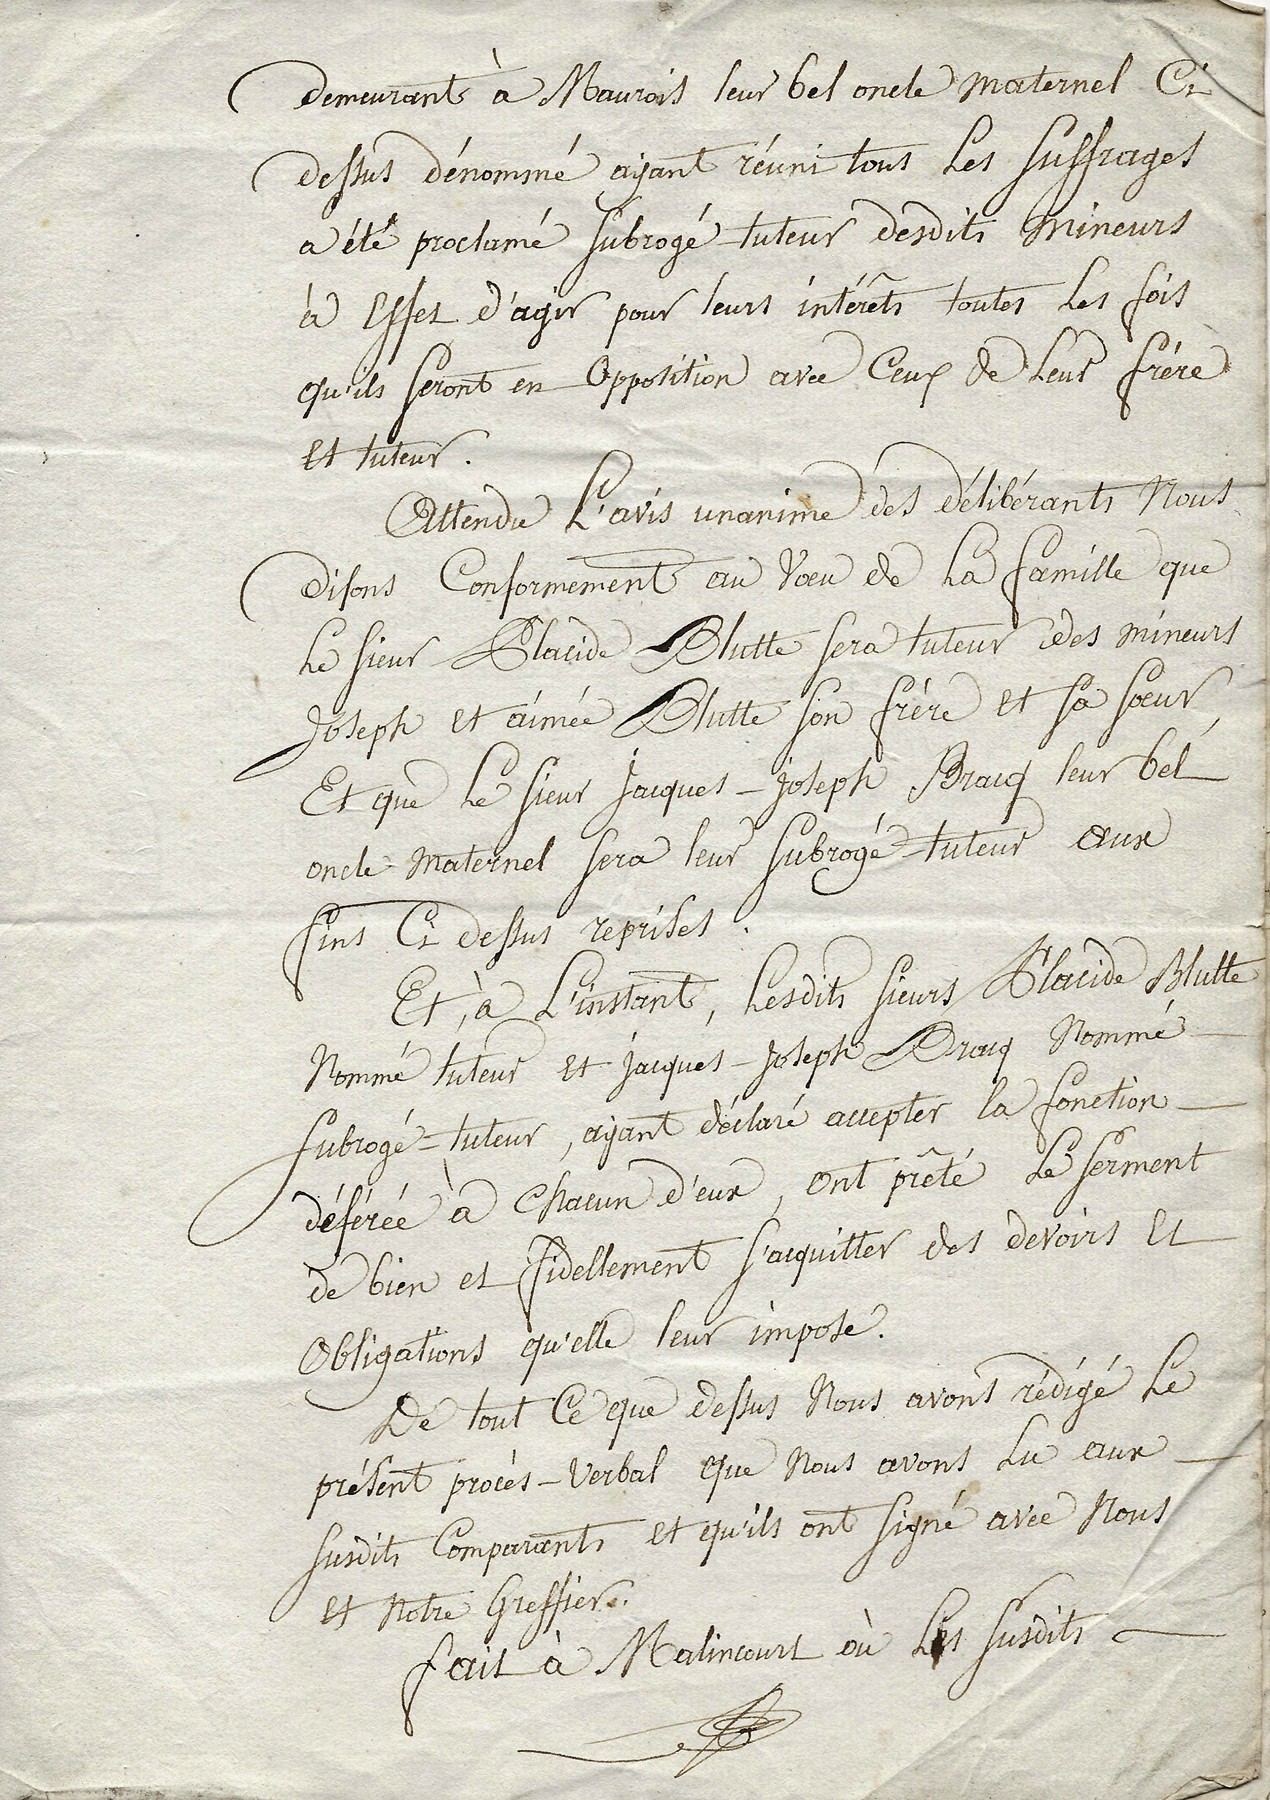 demeurant à Maurois leur bel oncle maternel Ci
dessus dénommé ayant réuni tous Les suffrages
a été proclamé subrogé-tuteur desdits Mineurs
à Effet d'agir pour leurs intérêts toutes Les fois
qu'ils seront en Opposition avec Ceux de Leur frère
et tuteur.
Attendu L'avis unanime des délibérants Nous
disons Conformement au Vœu de La famille que
Le sieur Placide Blutte sera tuteur des mineurs
Joseph et aimée Blutte son frère et sa sœur,
Et que Le sieur jacques-joseph Bracq leur bel
oncle maternel sera leur subrogé-tuteur aux
fins Ci dessus reprises.
Et, à L'instant, Lesdits sieurs Placide Blutte
Nommé tuteur et jacques-joseph Bracq Nommé
subrogé-tuteur, ayant déclaré accepter la fonction
déférée à Chacun d'eux, ont prêté Le serment
de bien et fidellement s'acquitter des devoirs et
Obligations qu'elle leur impose.
De tout Ce que dessus Nous avons rédigé Le
présent procès-Verbal que Nous avons Lu aux
susdits Comparants et qu'ils ont signé avec Nous
et Notre Greffier.
fait à Malincourt où Les susdits